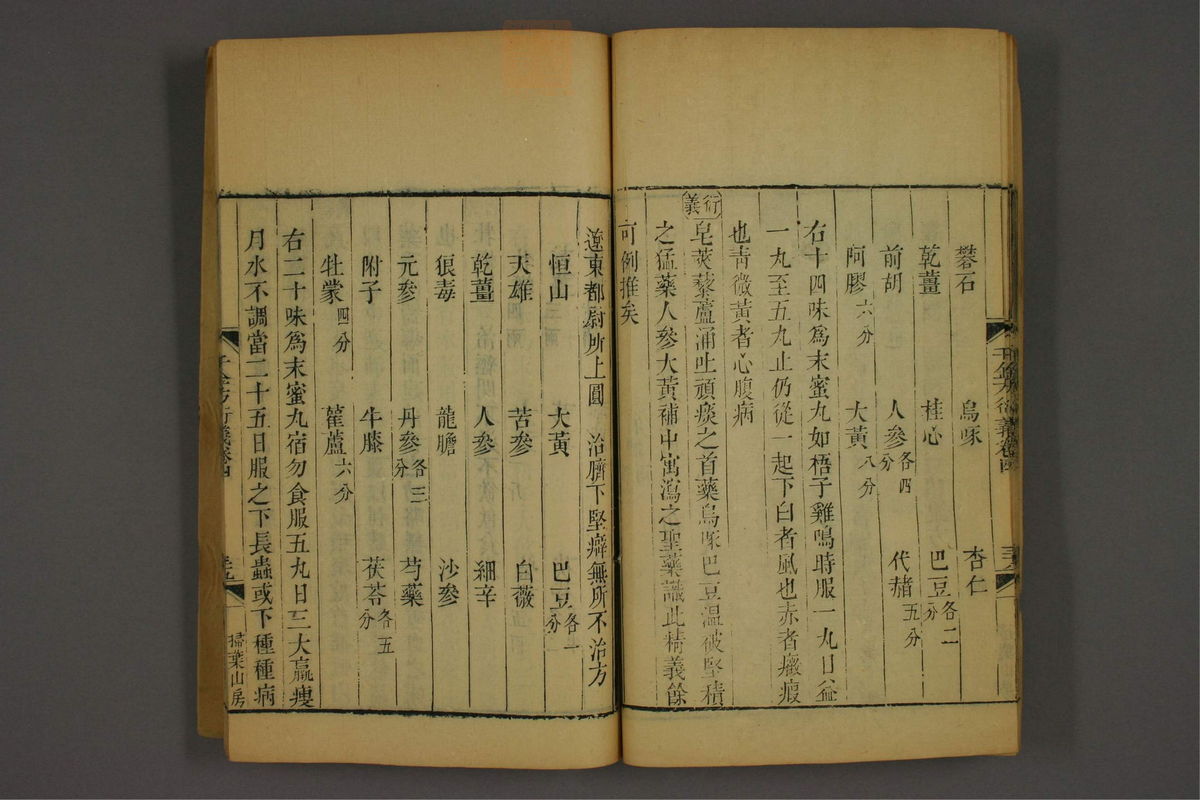 礬石　烏啄　杏仁
乾薑　桂心　巴豆各二分
前胡　人參各四分　代赭五分
阿膠六分　大黃八分
右十四味爲末蜜丸如梧子雞鳴時服一丸日益
一丸至五丸止仍從一起下白者風也赤者癥瘕
也靑微黃者心腹病
衍義
皂莢藜蘆涌吐頑痰之首藥烏啄巴豆溫破堅積
之猛藥人參大黃補中寓瀉之聖藥識此精義餘
可例推矣
遼東都尉所上圓　治臍下堅癖無所不治方
恒山三兩　大黃　巴豆各一分
天雄四兩　苦參　白薇
乾薑　人參　細辛
狼毒　龍膽　沙參
元參　丹參各三分　芍藥
附子　牛膝　茯苓各五分
牡蒙四分　雚蘆六分
右二十味爲末蜜丸宿勿食服五丸日三大羸瘦
月水不調當二十五日服之下長蟲或下種種病
千金方衍義卷四
掃葉山房